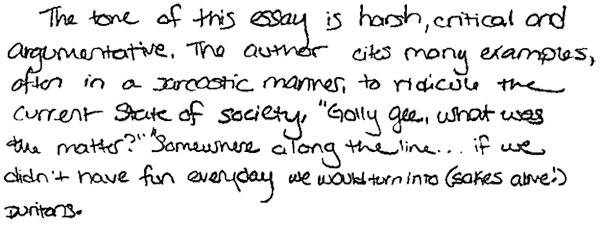 The tone of this essay is harsh, critical and
argumentative. The author cites many examples,
often in a sarcastic manner, to ridicule the
current state of society. "Golly gee, what was
the matter?" "Somewhere along the line... if we
didn't have fun everyday we would turn into (sakes alive!)
puritans.